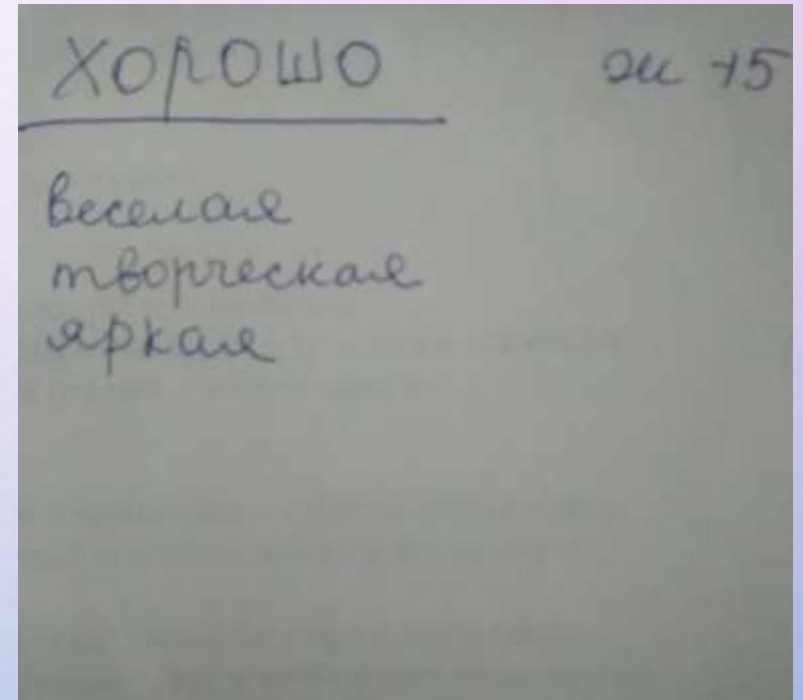 ХОРОШО ж 15
веселая
творческая
яркая